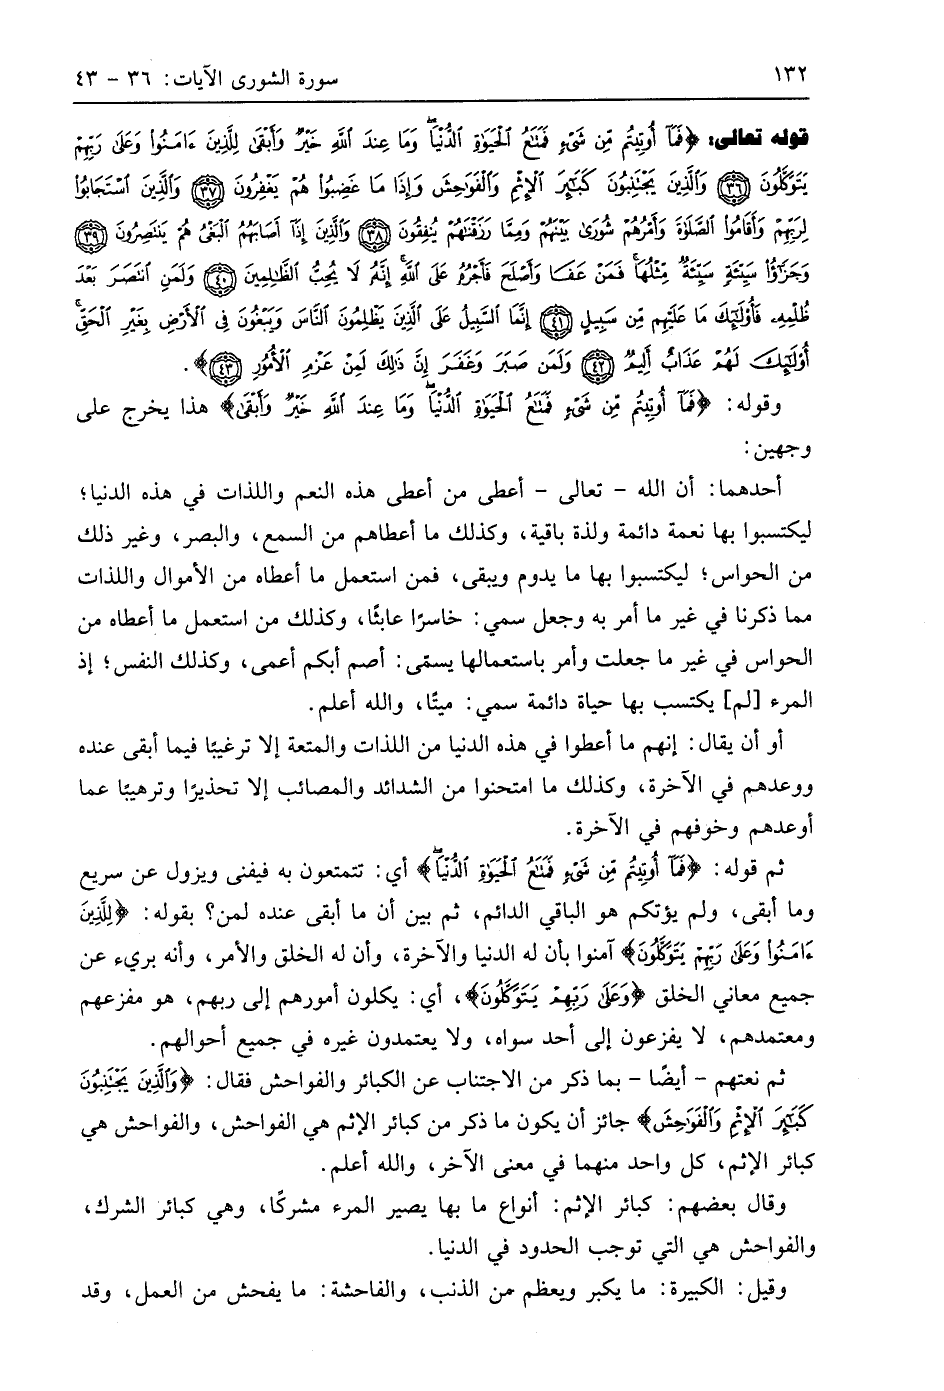 ١٣٢ سورة الشورى الآيات: ٣٦ - ٤٣
قوله تعالى: ﴿فَمَآ أُوتِيتُم مِّن شَىْءٍ فَمَتَٰعُ ٱلْحَيَوٰةِ ٱلدُّنْيَاۖ وَمَا عِندَ ٱللَّهِ خَيْرٌ وَأَبْقَىٰ لِلَّذِينَ ءَامَنُوا۟ وَعَلَىٰ رَبِّهِمْ
يَتَوَكَّلُونَ ٣٦ وَٱلَّذِينَ يَجْتَنِبُونَ كَبَٰٓئِرَ ٱلْإِثْمِ وَٱلْفَوَٰحِشَ وَإِذَا مَا غَضِبُوا۟ هُمْ يَغْفِرُونَ ٣٧ وَٱلَّذِينَ ٱسْتَجَابُوا۟
لِرَبِّهِمْ وَأَقَامُوا۟ ٱلصَّلَوٰةَ وَأَمْرُهُمْ شُورَىٰ بَيْنَهُمْ وَمِمَّا رَزَقْنَٰهُمْ يُنفِقُونَ ٣٨ وَٱلَّذِينَ إِذَآ أَصَابَهُمُ ٱلْبَغْىُ هُمْ يَنتَصِرُونَ ٣٩
وَجَزَٰٓؤُا۟ سَيِّئَةٍ سَيِّئَةٌ مِّثْلُهَاۖ فَمَنْ عَفَا وَأَصْلَحَ فَأَجْرُهُۥ عَلَى ٱللَّهِۚ إِنَّهُۥ لَا يُحِبُّ ٱلظَّٰلِمِينَ ٤٠ وَلَمَنِ ٱنتَصَرَ بَعْدَ
ظُلْمِهِۦ فَأُو۟لَٰٓئِكَ مَا عَلَيْهِم مِّن سَبِيلٍ ٤١ إِنَّمَا ٱلسَّبِيلُ عَلَى ٱلَّذِينَ يَظْلِمُونَ ٱلنَّاسَ وَيَبْغُونَ فِى ٱلْأَرْضِ بِغَيْرِ ٱلْحَقِّۚ
أُو۟لَٰٓئِكَ لَهُمْ عَذَابٌ أَلِيمٌ ٤٢ وَلَمَن صَبَرَ وَغَفَرَ إِنَّ ذَٰلِكَ لَمِنْ عَزْمِ ٱلْأُمُورِ ٤٣﴾.
وقوله: ﴿فَمَآ أُوتِيتُم مِّن شَىْءٍ فَمَتَٰعُ ٱلْحَيَوٰةِ ٱلدُّنْيَاۖ وَمَا عِندَ ٱللَّهِ خَيْرٌ وَأَبْقَىٰ﴾ هذا يخرج على
وجهين:
أحدهما: أن الله - تعالى - أعطى من أعطى هذه النعم واللذات في هذه الدنيا؛
ليكتسبوا بها نعمة دائمة ولذة باقية، وكذلك ما أعطاهم من السمع، والبصر، وغير ذلك
من الحواس؛ ليكتسبوا بها ما يدوم ويبقى، فمن استعمل ما أعطاه من الأموال واللذات
مما ذكرنا في غير ما أمر به وجعل سمي: خاسرًا عابثًا، وكذلك من استعمل ما أعطاه من
الحواس في غير ما جعلت وأمر باستعمالها يسمّى: أصم أبكم أعمى، وكذلك النفس؛ إذ
المرء [لم] يكتسب بها حياة دائمة سمي: ميتًا، والله أعلم.
أو أن يقال: إنهم ما أعطوا في هذه الدنيا من اللذات والمتعة إلا ترغيبًا فيما أبقى عنده
ووعدهم في الآخرة، وكذلك ما امتحنوا من الشدائد والمصائب إلا تحذيرًا وترهيبًا عما
أوعدهم وخوفهم في الآخرة.
ثم قوله: ﴿فَمَآ أُوتِيتُم مِّن شَىْءٍ فَمَتَٰعُ ٱلْحَيَوٰةِ ٱلدُّنْيَاۖ﴾ أي: تتمتعون به فيفنى ويزول عن سريع
وما أبقى، ولم يؤتكم هو الباقي الدائم، ثم بين أن ما أبقى عنده لمن؟ بقوله: ﴿لِلَّذِينَ
ءَامَنُوا۟ وَعَلَىٰ رَبِّهِمْ يَتَوَكَّلُونَ﴾ آمنوا بأن له الدنيا والآخرة، وأن له الخلق والأمر، وأنه بريء عن
جميع معاني الخلق ﴿وَعَلَىٰ رَبِّهِمْ يَتَوَكَّلُونَ﴾، أي: يكلون أمورهم إلى ربهم، هو مفزعهم
ومعتمدهم، لا يفزعون إلى أحد سواه، ولا يعتمدون غيره في جميع أحوالهم.
ثم نعتهم - أيضًا - بما ذكر من الاجتناب عن الكبائر والفواحش فقال: ﴿وَٱلَّذِينَ يَجْتَنِبُونَ
كَبَٰٓئِرَ ٱلْإِثْمِ وَٱلْفَوَٰحِشَ﴾ جائز أن يكون ما ذكر من كبائر الإثم هي الفواحش، والفواحش هي
كبائر الإثم، كل واحد منهما في معنى الآخر، والله أعلم.
وقال بعضهم: كبائر الإثم: أنواع ما بها يصير المرء مشركًا، وهي كبائر الشرك،
والفواحش هي التي توجب الحدود في الدنيا.
وقيل: الكبيرة: ما يكبر ويعظم من الذنب، والفاحشة: ما يفحش من العمل، وقد